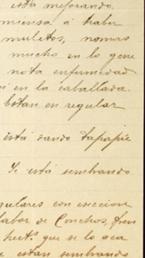 está mejorando
mensa á haber
muletos, nomas
mucho en lo gene
nota enfermedad
ni en la caballada.
bitan en regular
está dando tapapié
Se está sembrando
gulares con excecion
labor de Conchos, fren
hect. que se lo aca
e estan sembrando